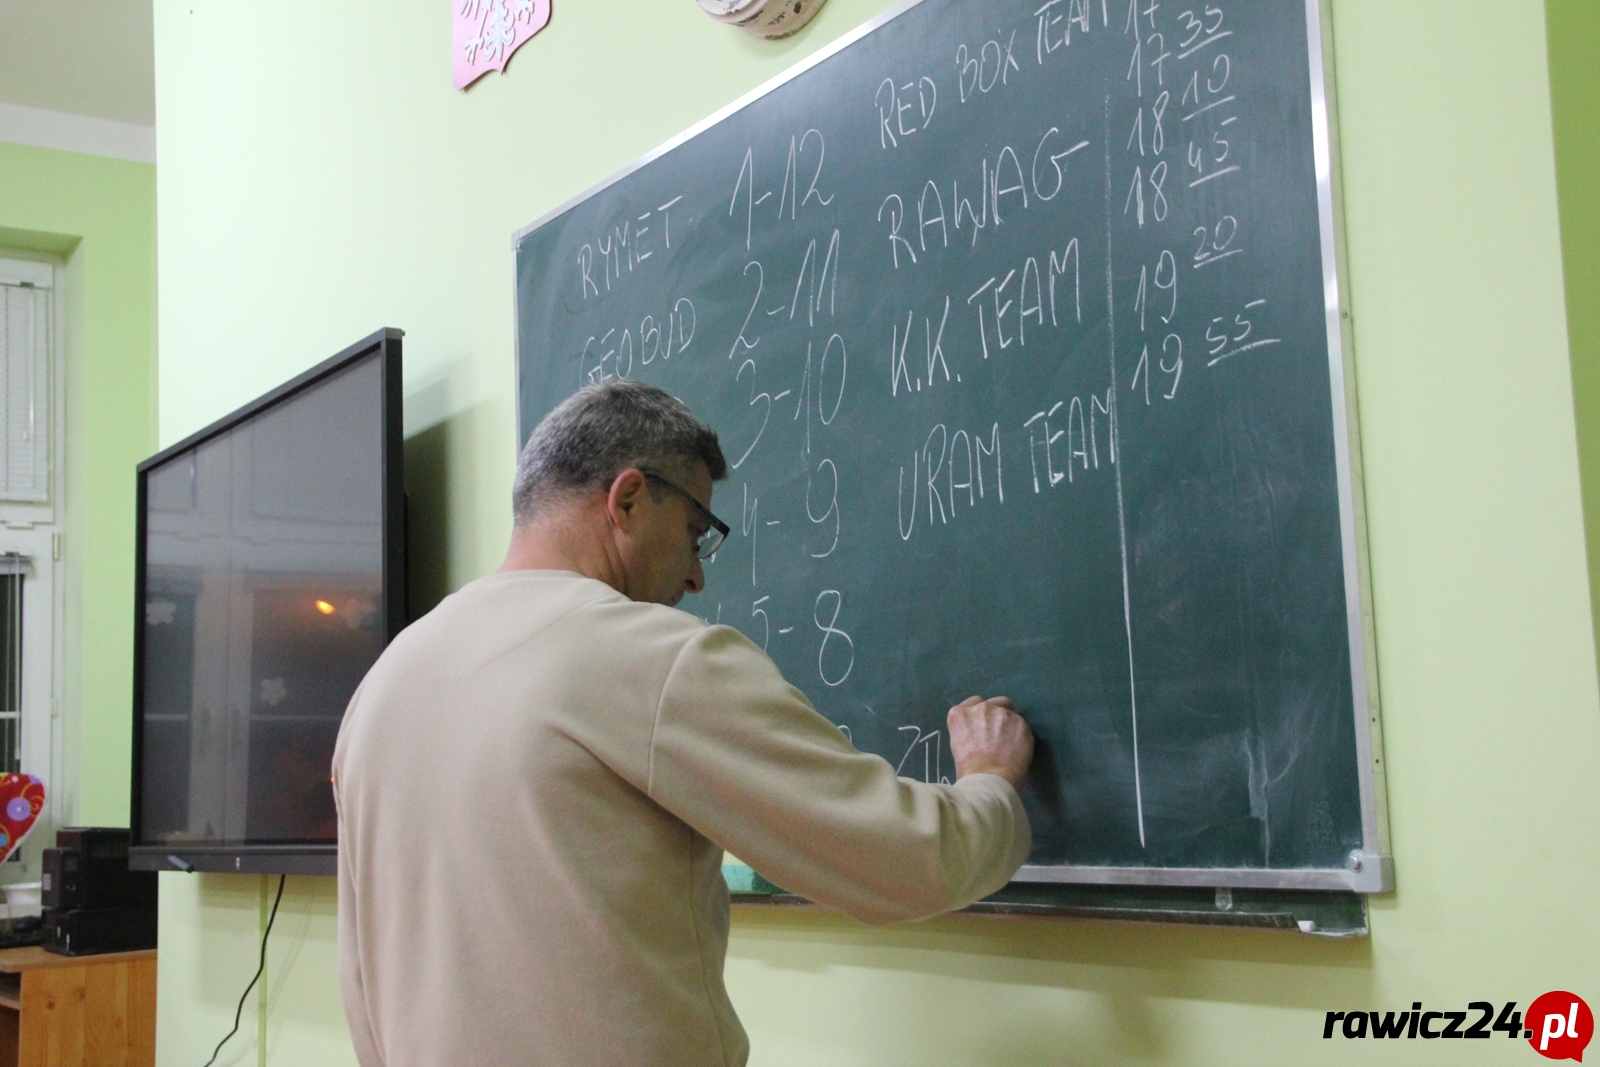 RYMET 1-12 RED BOX TEAM 17
GEOBUD 2-11 RAWAG 17 35
3-10 K.K. TEAM 18 10
4-9 URAM TEAM 18 45
5-8 19 20
19 55
rawicz24.pl